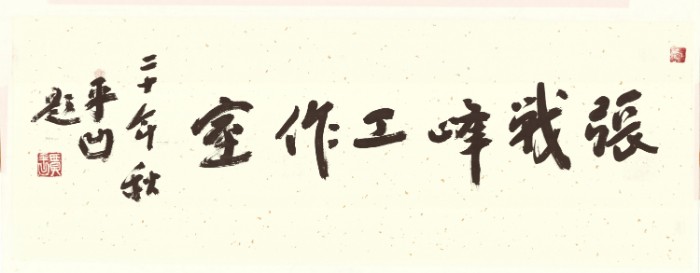 張战峰工作室
二十年秋
平凹
题